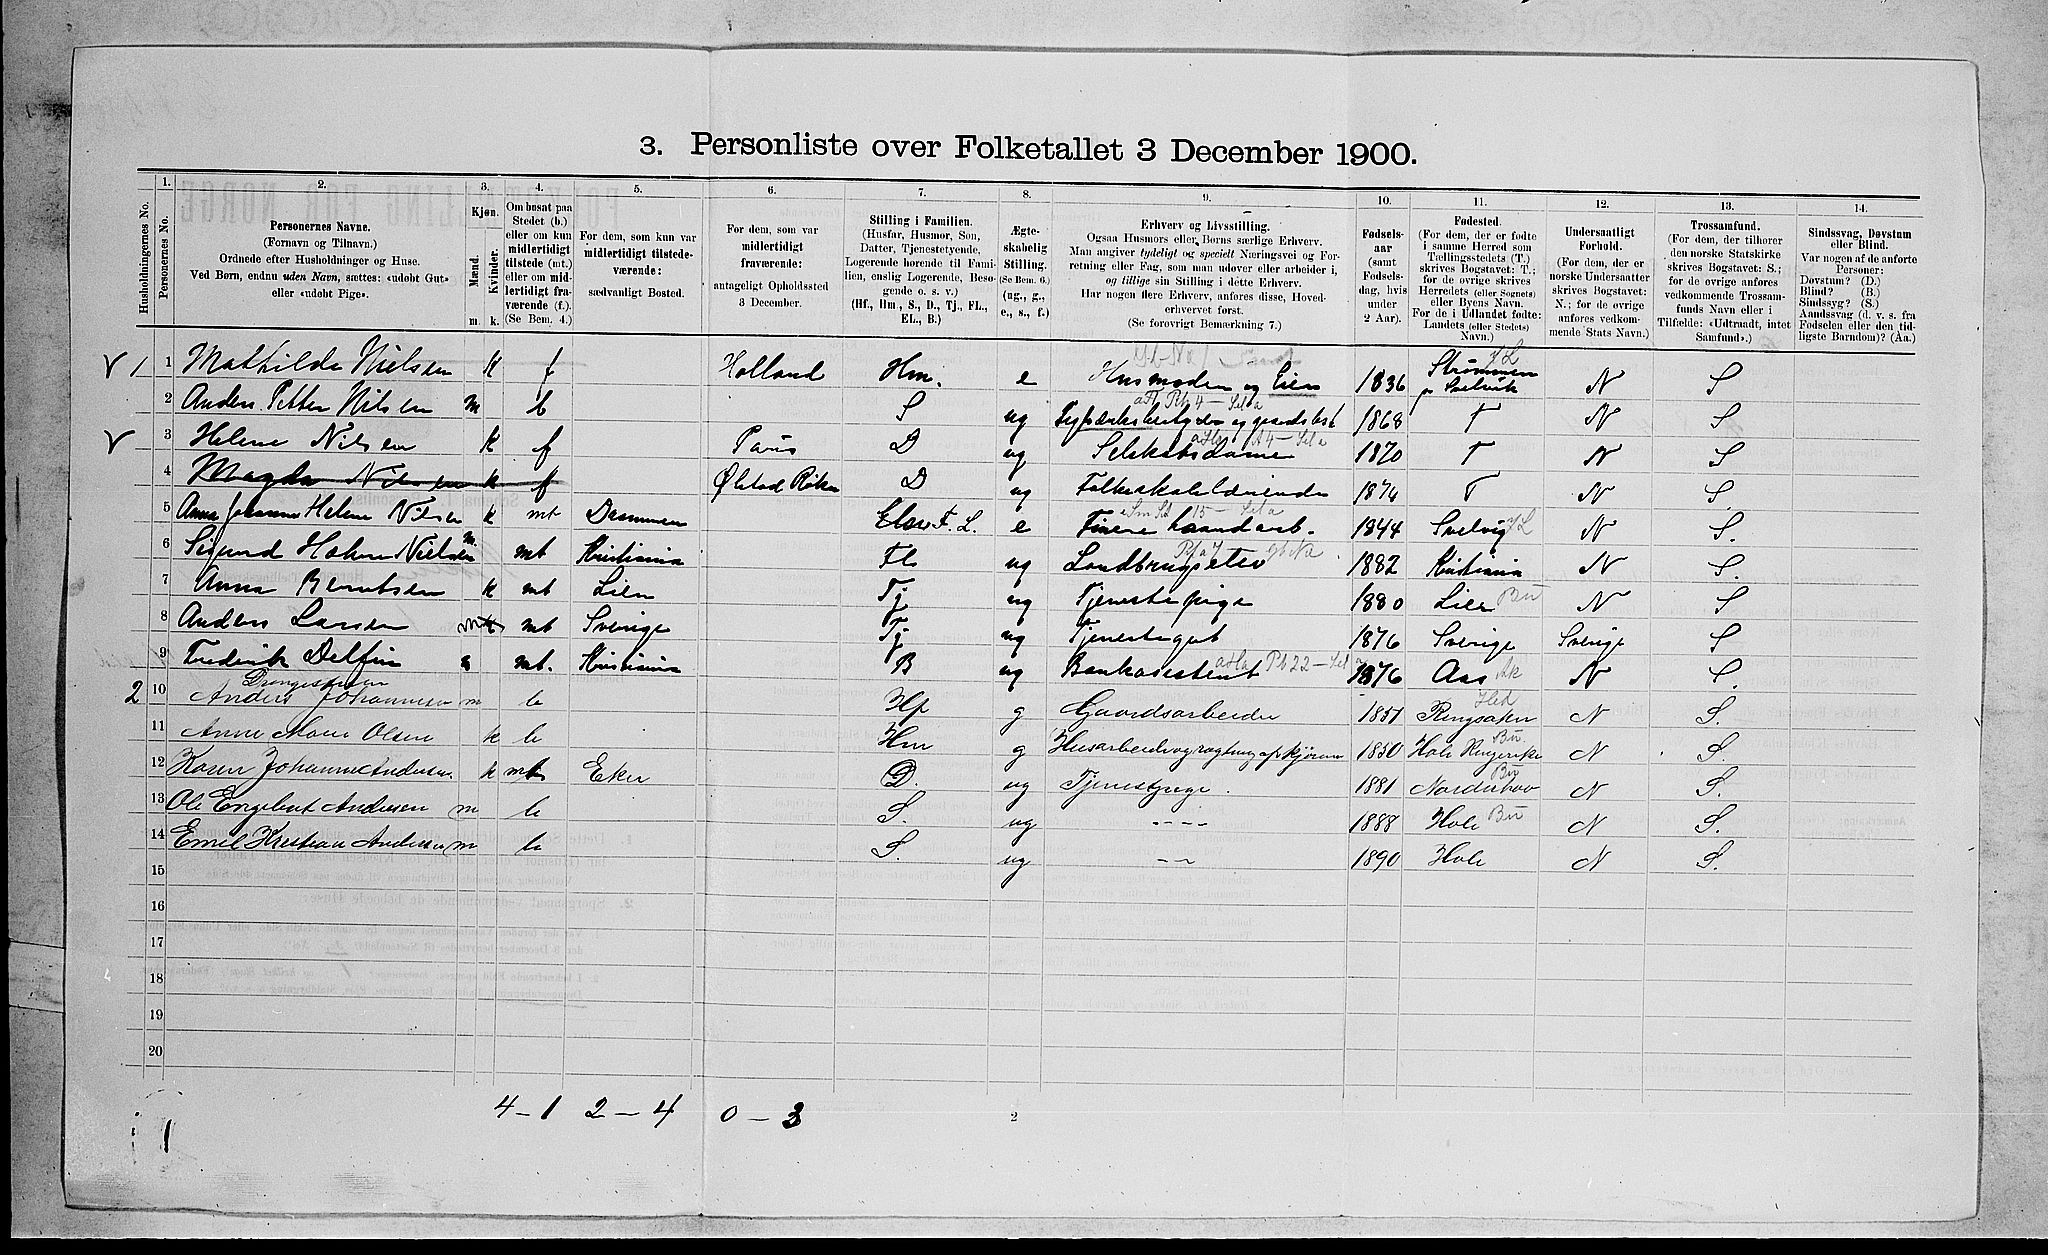 3. Personliste over Folketallet 3 December 1900.
Husholdningernes No.
1. Personernes No.
2. Personernes Navne.
(Fornavn og Tilnavn.)
Ordnede efter Husholdninger og Huse.
Ved Børn, endnu uden Navn, sættes: «udøbt Gut»
eller «udøbt Pige».
3. Kjøn.
Mænd. Kvinder.
m. k.
4. Om bosat paa
Stedet (b.)
eller om kun
midlertidigt
tilstede (mt.)
eller om mid-
lertidigt fra-
værende (f.).
(Se Bem. 4.)
5. For dem, som kun var
midlertidigt tilstede-
værende:
sædvanligt Bosted.
6. For dem, som var
midlertidigt
fraværende:
antageligt Opholdssted
3 December.
7. Stilling i Familien.
(Husfar, Husmor, Søn,
Datter, Tjenestetyende,
Logerende hørende til Fami-
lien, enslig Logerende, Besø-
gende o. s. v.)
(Hf., Hm., S., D., Tj., FL.,
EL., B.)
8. Ægte-
skabelig
Stilling.
(Se Bem. 6.)
(ug., g.,
e., s., f.)
9. Erhverv og Livsstilling.
Ogsaa Husmors eller Børns særlige Erhverv.
Man angiver tydeligt og specielt Næringsvei og For-
retning eller Fag, som man udøver eller arbeider i,
og tillige sin Stilling i dette Erhverv.
Har nogen flere Erhverv, anføres disse, Hoved-
erhvervet først.
(Se forøvrigt Bemærkning 7.)
10. Fødsels-
aar
(samt
Fødsels-
dag, hvis
under
2 Aar).
11. Fødested.
(For dem, der er fødte
i samme Herred som
Tællingsstedets (T.)
skrives Bogstavet: T.;
for de øvrige skrives
Herredets (eller Sognets)
eller Byens Navn.
For de i Udlandet fødte:
Landets (eller Stedets)
Navn.)
12. Undersaatligt
Forhold.
(For dem, der er
norske Undersaatter
skrives Bogstavet:
N.; for de øvrige
anføres vedkom-
mende Stats Navn.)
13. Trossamfund.
(For dem, der tilhører
den norske Statskirke
skrives Bogstavet: S.;
for de øvrige anføres
vedkommende Trossam-
funds Navn eller i
Tilfælde: «Udtraadt, intet
Samfund».)
14. Sindssvag, Døvstum
eller Blind.
Var nogen af de anførte
Personer:
Døvstum? (D.)
Blind? (B.)
Sindssyg? (S.)
Aandssvag (d. v. s. fra
Fødselen eller den tid-
ligste Barndom)? (Aa.)
1 1 Mathilde Nielsen k f Holland Hm. e Husmoder og Eier 1836 Strømmen p Svelvik N S
2 Anders Petter Nilsen m b S ug 1868 T N S
3 Helene Nilsen k f Paris D ug Selskabsdame 1870 T N S
4 Magda Nilsen k f Ølstad Røken D ug 1874 T N S.
5 Anna Johanne Helene Nilsen k mt Drammen F. L. e Finere haandarb. 1844 Svelvig N S.
6 Sigurd Nielsen m. mt Kristiania FL ug Landbrugselev 1882 Kristiania N S.
7 Anna Berntsen k mt Lier Tj ug Tjenestepige 1880 Lier Bu N S
8 Anders Larsen m mt Sverige Tj ug Tjenestegut 1876 Sverige Sverige S
9 Frederik Delfin m mt. Kristiania B ug Bankassistent 1876 Aas Ak N S.
2 10 Anders Johannesen m b Hf g Gaardsarbeider 1851 Ringsaker Hed N S.
11 Anne Marie Olsen k b Hm g Husarbeide og røgtning af kjørene 1850 Hole Ringerike Bu N S.
12 Karen Johanne Andersen k mt Eker D. ug Tjenestpige. 1881 Norderhov Bu N S.
13 Ole Engebret Andersen m b S. ug ---- 1888 Hole Bu N S.
14 Emil Kristian Andersen m b S. ug -- 1890 Hole N S.
15
16
17
18
19
20
4-1 2-4 0-3
2
1